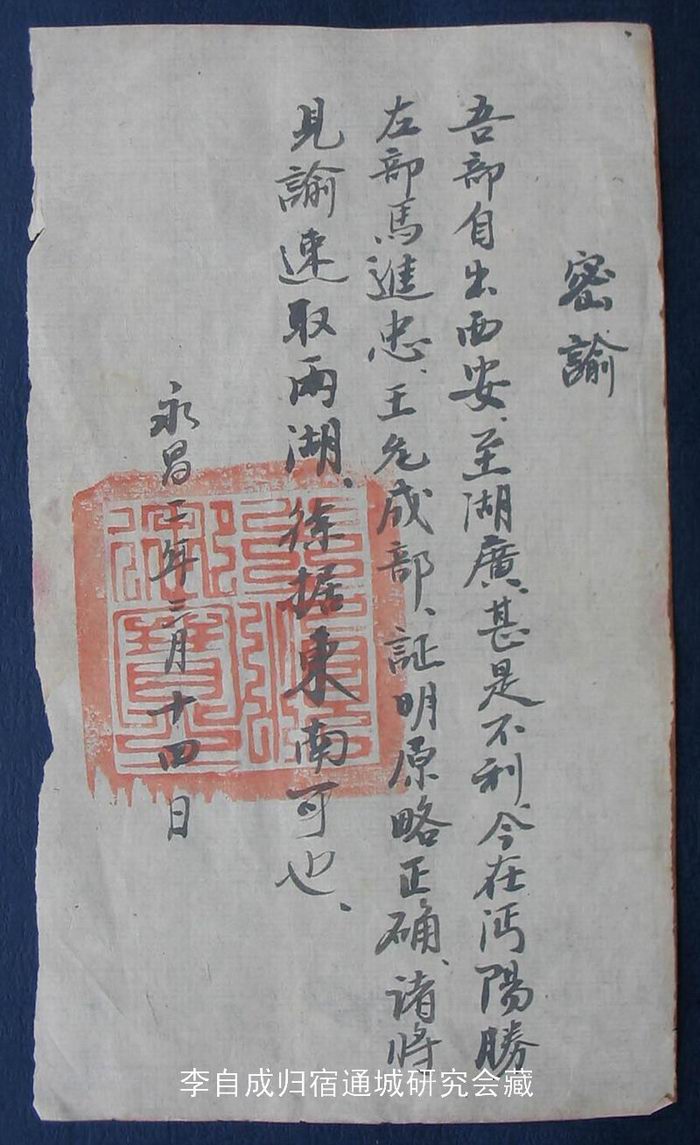 密諭
吾部自出西安、至湖廣、甚是不利、今在沔陽勝
左部馬進忠、王允成部、証明原略正确、诸將
見諭速取兩湖、徐据東南可也、
永昌二年三月十四日
李自成归宿通城研究会藏